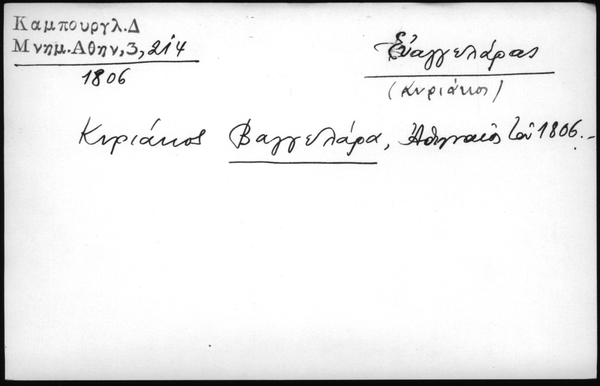 Καμπουργλ.Δ
Μνημ.Αθην,3,214
1806
Εὐαγγελάρας
(Κυριάκος)
Κυριάκος Βαγγελάρα, Ἀθηναῖος τοῦ 1806.-